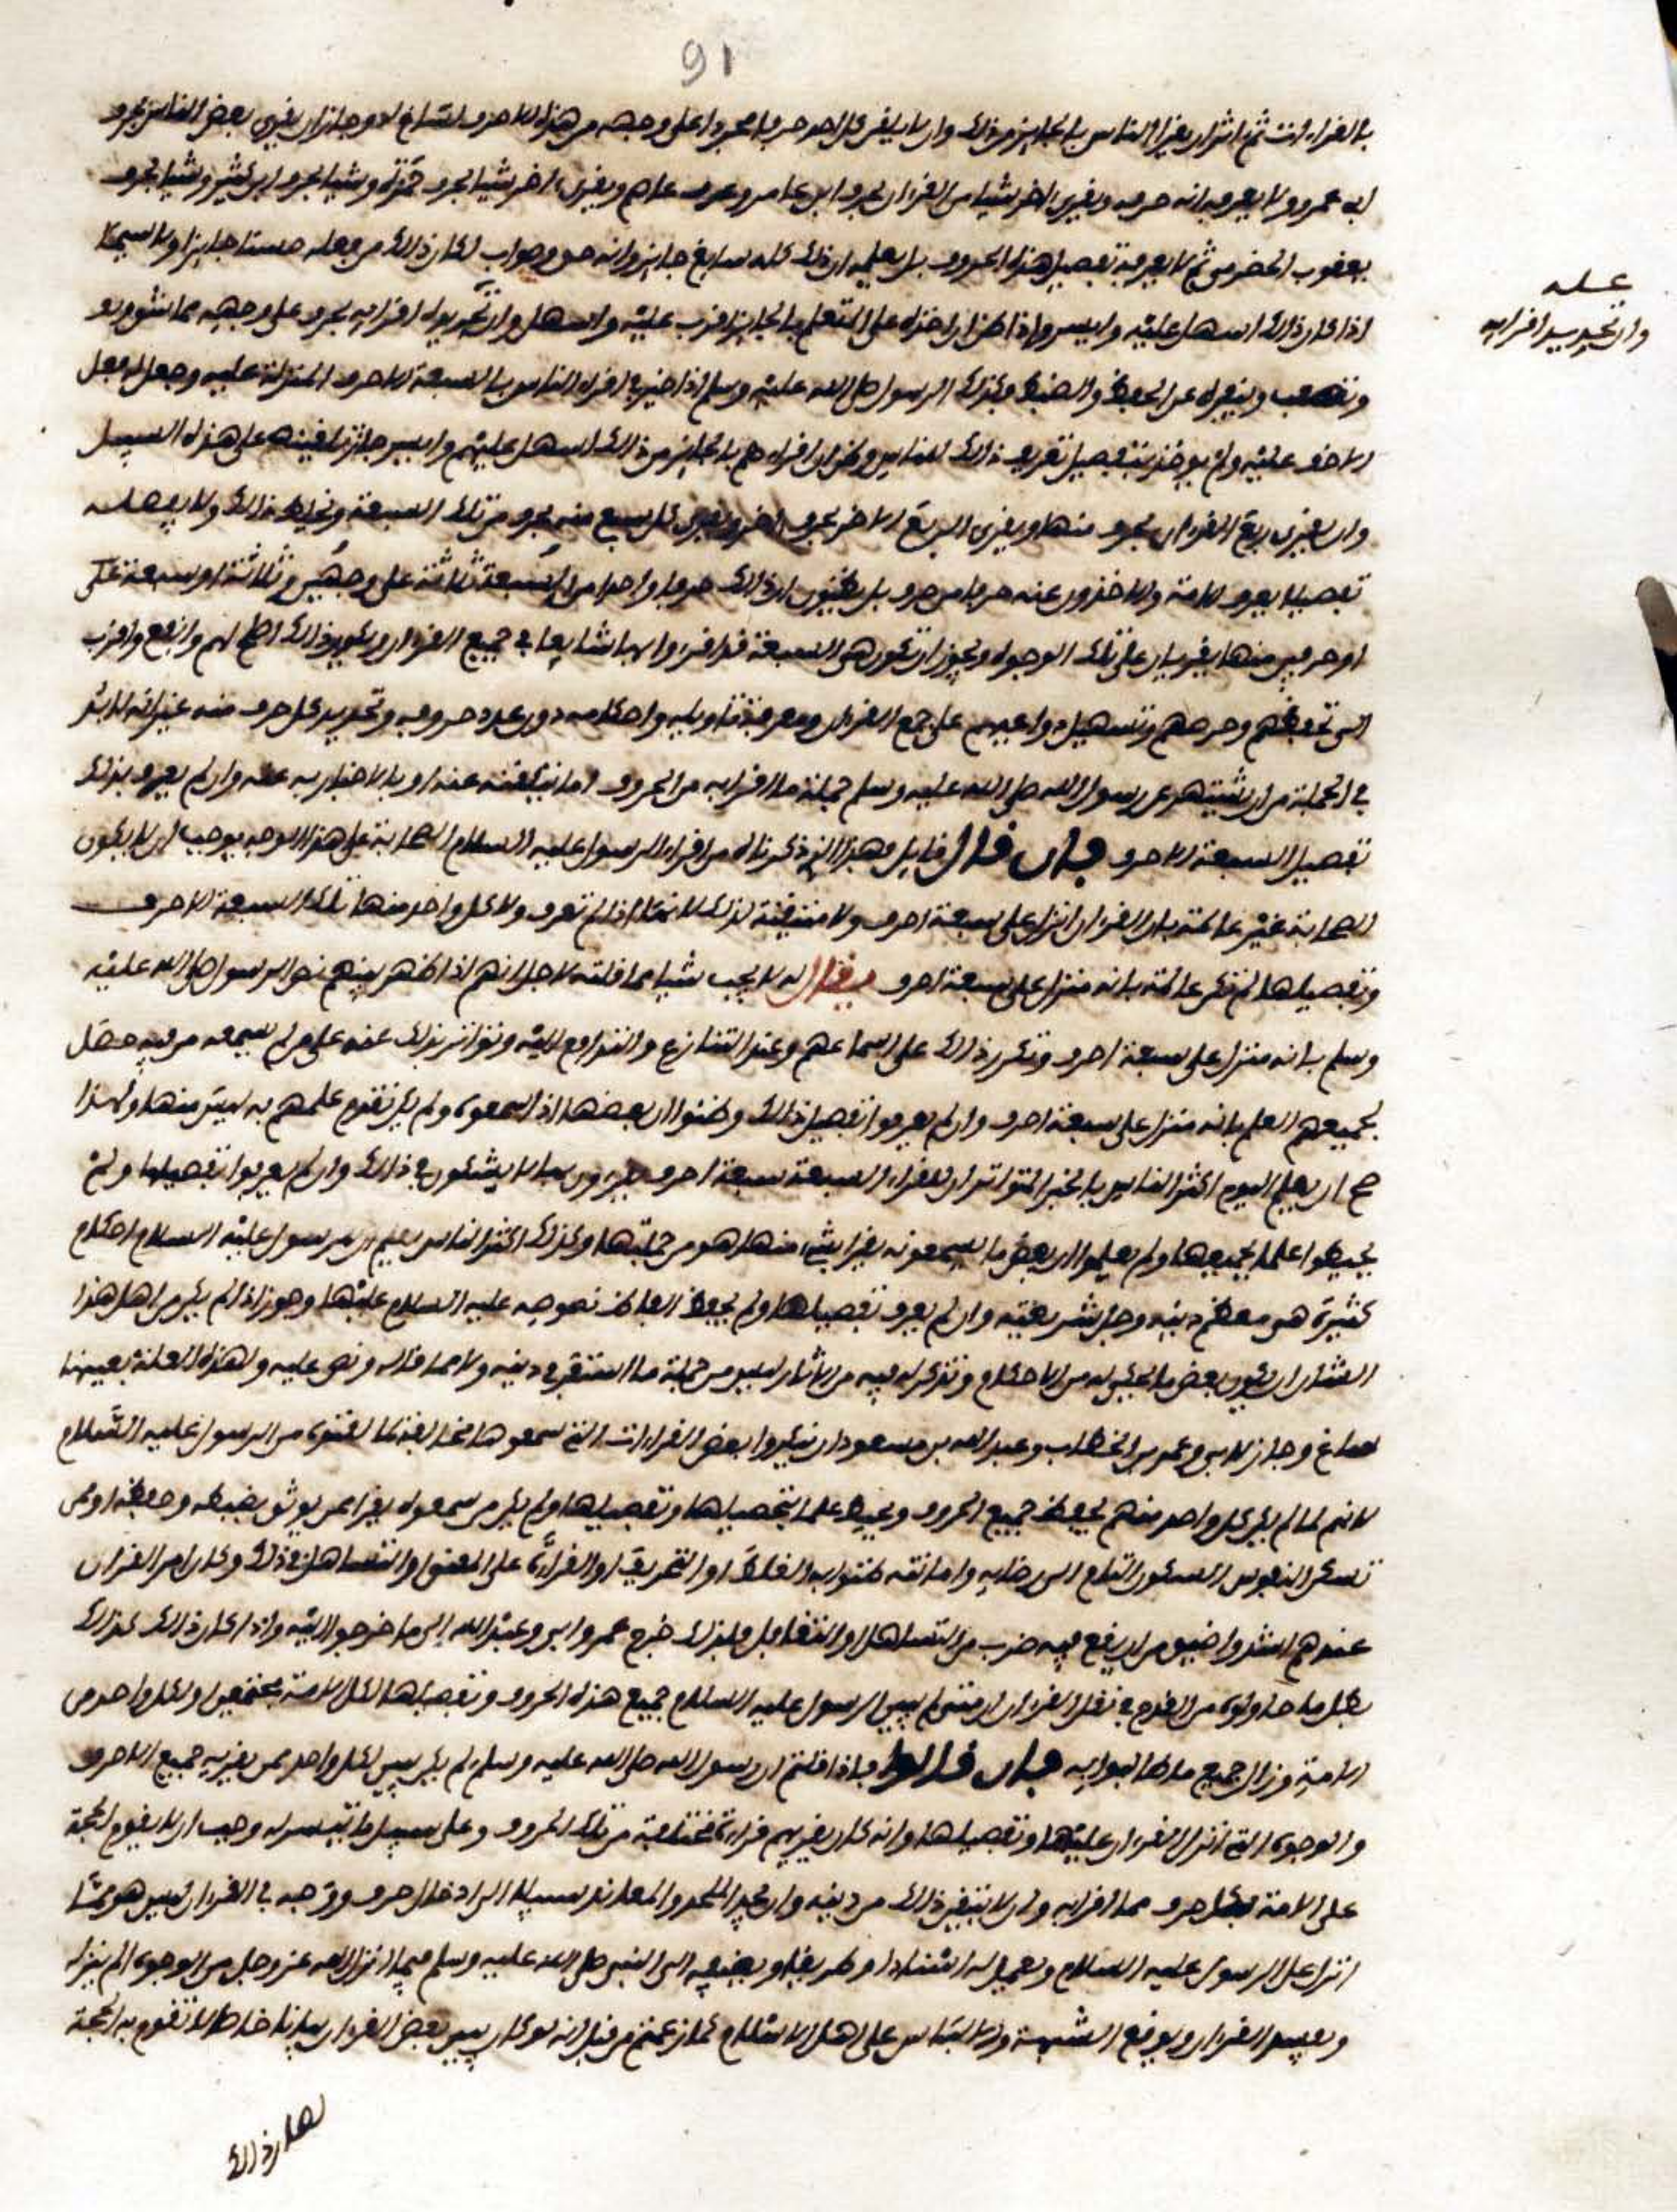 91
بالقراءات ثم اثر ان يقرا الناس بالجايز من ذلك وان لا يقرى كل احد حرفا مجردا على وجهه من هذه الاحرف لساغ له وجاز ان يقرى بعض الناس بحرف
ابى عمرو ولا يعرفه انه حرفه ويقرى اخر شيا من القران بحرف ابن عامر وحرف عاصم ويقرى اخر شيا بحرف حمزة وشيا بحرف ابن كثير وشيا بحرف
يعقوب الحضرمى ثم لا يعرفه تفصيل هذه الحروف بل يعلمه ان ذلك كله سايغ جايز وانه حق وصواب لكان ذلك من فعله حسنا جايزا ولا سيما
اذا كان ذلك اسهل عليه وايسر واذا ظن ان اخذه على المتعلم بالجايز اقرب عليه واسهل وان تجريده اقرايه بحرف على وجهه مما يشق
علــه
وان تجريد اقرايه
ويصعب وينفره عن الحفظ والضبط وكذلك الرسول صلى الله عليه وسلم اذا خير فى اقراء الناس بالسبعة الاحرف المنزلة عليه وجعل له فعل
الاخف عليه ولم يوخذ بتفصيل تعريف ذلك للناس وظن ان اقراءهم بالجايز من ذلك اسهل عليهم وايسر جاز تلقينهم على هذه السبيل
وان يقرى ربع القران بحرف منها ويقرى الربع الاخر بحرف اخر ويقرى كل سبع منه بحرف من تلك السبعة ويخلط ذلك ولا يفصله
تفصيلا يعرف الامة والاخذون عنه حرفا من حرف بل يظنون ان ذلك حرفا واحدا من السبعة ثلاثة على وجهين وثلاثة او سبعة على
او حرفين منها يقريان على تلك الوجوه ويجوز ان تكون هى السبعة قد اقروا بها شايعا فى جميع القران ويكون ذلك اصلح لهم وانفع واقرب
الى تحفظهم وحرصهم وتسهيل دواعيهم على جمع القران ومعرفة تاويله واحكامه دون عدد حروفه وتحديد كل حرف منه غير انه لا بد
فى الجملة من ان يشتهر عن رسول الله صلى الله عليه وسلم جملة ما اقرا به من الحروف اما بتلقنه عنه او بالاخبار به عنه وان لم يعرف بذلك
تفصيل السبعة الاحرف فان قال قايل فهذا الذى ذكرتم من اقراء الرسول عليه السلام الصحابة على هذا الوجه يوجب ان لا يكون
الصحابة غير عالمة بان القران انزل على سبعة احرف ولا متيقنة لذلك لانها اذا لم تعرف ولا كل واحد منها تلك السبعة الاحرف
وتفصيلها لم تكن عالمة بانه منزل على سبعة احرف فيقال له لا يجب شيا مما قلته لاجل انهم اذا ظهر بينهم نص الرسول صلى الله عليه
وسلم بانه منزل على سبعة احرف وتكرر ذلك على اسماعهم وعند التنازع والتدافع اليه وتواتر بذلك عنه على من لم يسمعه من فيه حصل
لجميعهم العلم بانه منزل على سبعة احرف وان لم يعرفوا تفصيل ذلك وظنوا ان بعضها اذا سمعوه ولم يكن تقدم علمهم به ليس منها ولهذا
صح ان يعلم اليوم اكثر الناس بالخبر المتواتر ان للقراء السبعة سبعة احرف يقرون بها لا يشكون فى ذلك وان لم يعرفوا تفصيلها ولم
يحيطوا علما بجميعها ولم يعلموا ان بعض ما يسمعونه يقرا بشىء منها هو من جملتها وكذلك اكثر الناس يعلم ان للرسول عليه السلام احكام
كثيرة هى معظم دينه وجل شريعته وان لم يعرف تفصيلها ولم يحفظ الفاظ نصوصه عليه السلام عليها وجوز اذا لم يكن من اهل هذا
الشان ان يكون بعض ما يحكى له من الاحكام وتذكر له فيه من الاثار ليس من جملة ما استقر فى دينه ولا مما قاله ونص عليه ولهذه العلة بعينها
ساغ وجاز لابى وعمر بن الخطاب وعبد الله بن مسعود ان ينكروا بعض القراءات التى سمعوها مخالفة لما لقنوه من الرسول عليه السلام
لانهم لما لم يكن كل واحد منهم يحفظ جميع الحروف ويحيط علما بتحصيلها وتفصيلها ولم يكن من سمعوه يقرا ممن يوثق بضبطه وحفظه او من
تسكن النفوس السكون التام الى رضايه وامانته ظنوا به الغلط او التحريف او القراءة على المعنى او التساهل فى ذلك وكان امر القران
عندهم اشد واضيق من ان يقع فيه ضرب من التساهل والتغافل فلذلك خرج عمر وابى وعبد الله الى ما خرجوا اليه واذا كان ذلك كذلك
بطل ما حاولوه من القدح فى نقل القران ان متى لم يبين الرسول عليه السلام جميع هذه الحروف وتفصيلها لكل الامة مجتمعين او لكل واحد من
الامة وزال جميع ما طالبوا به فان قالوا فاذا قلتم ان رسول الله صلى الله عليه وسلم لم يكن يبين لكل واحد ممن يقريه جميع الاحرف
والوجوه التى انزل القران عليها وتفصيلها وانه كان يقريهم قراءة مختلفة من تلك الحروف وعلى سبيل ما تيسر له وجب ان لا يقوم الحجة
على الامة بكل حرف مما اقرا به وان لا يتيقن ذلك من دينه وان يجد الملحد والمعاند سبيلا الى ادخال حرف ووجه فى القران ليس هو مما
انزل على الرسول عليه السلام ويعمل له اسنادا وطريقا ويضيفه الى النبى صلى الله عليه وسلم فيما انزل الله عز وجل من الوجوه ما لم ينزله
ويفسد القران ويوقع الشبهة والالباس على اهل الاسلام كما زعمتم من قبل انه لو كان يبين بعض القران بيانا خاصا لا تقوم به الحجة
لكان ذلك